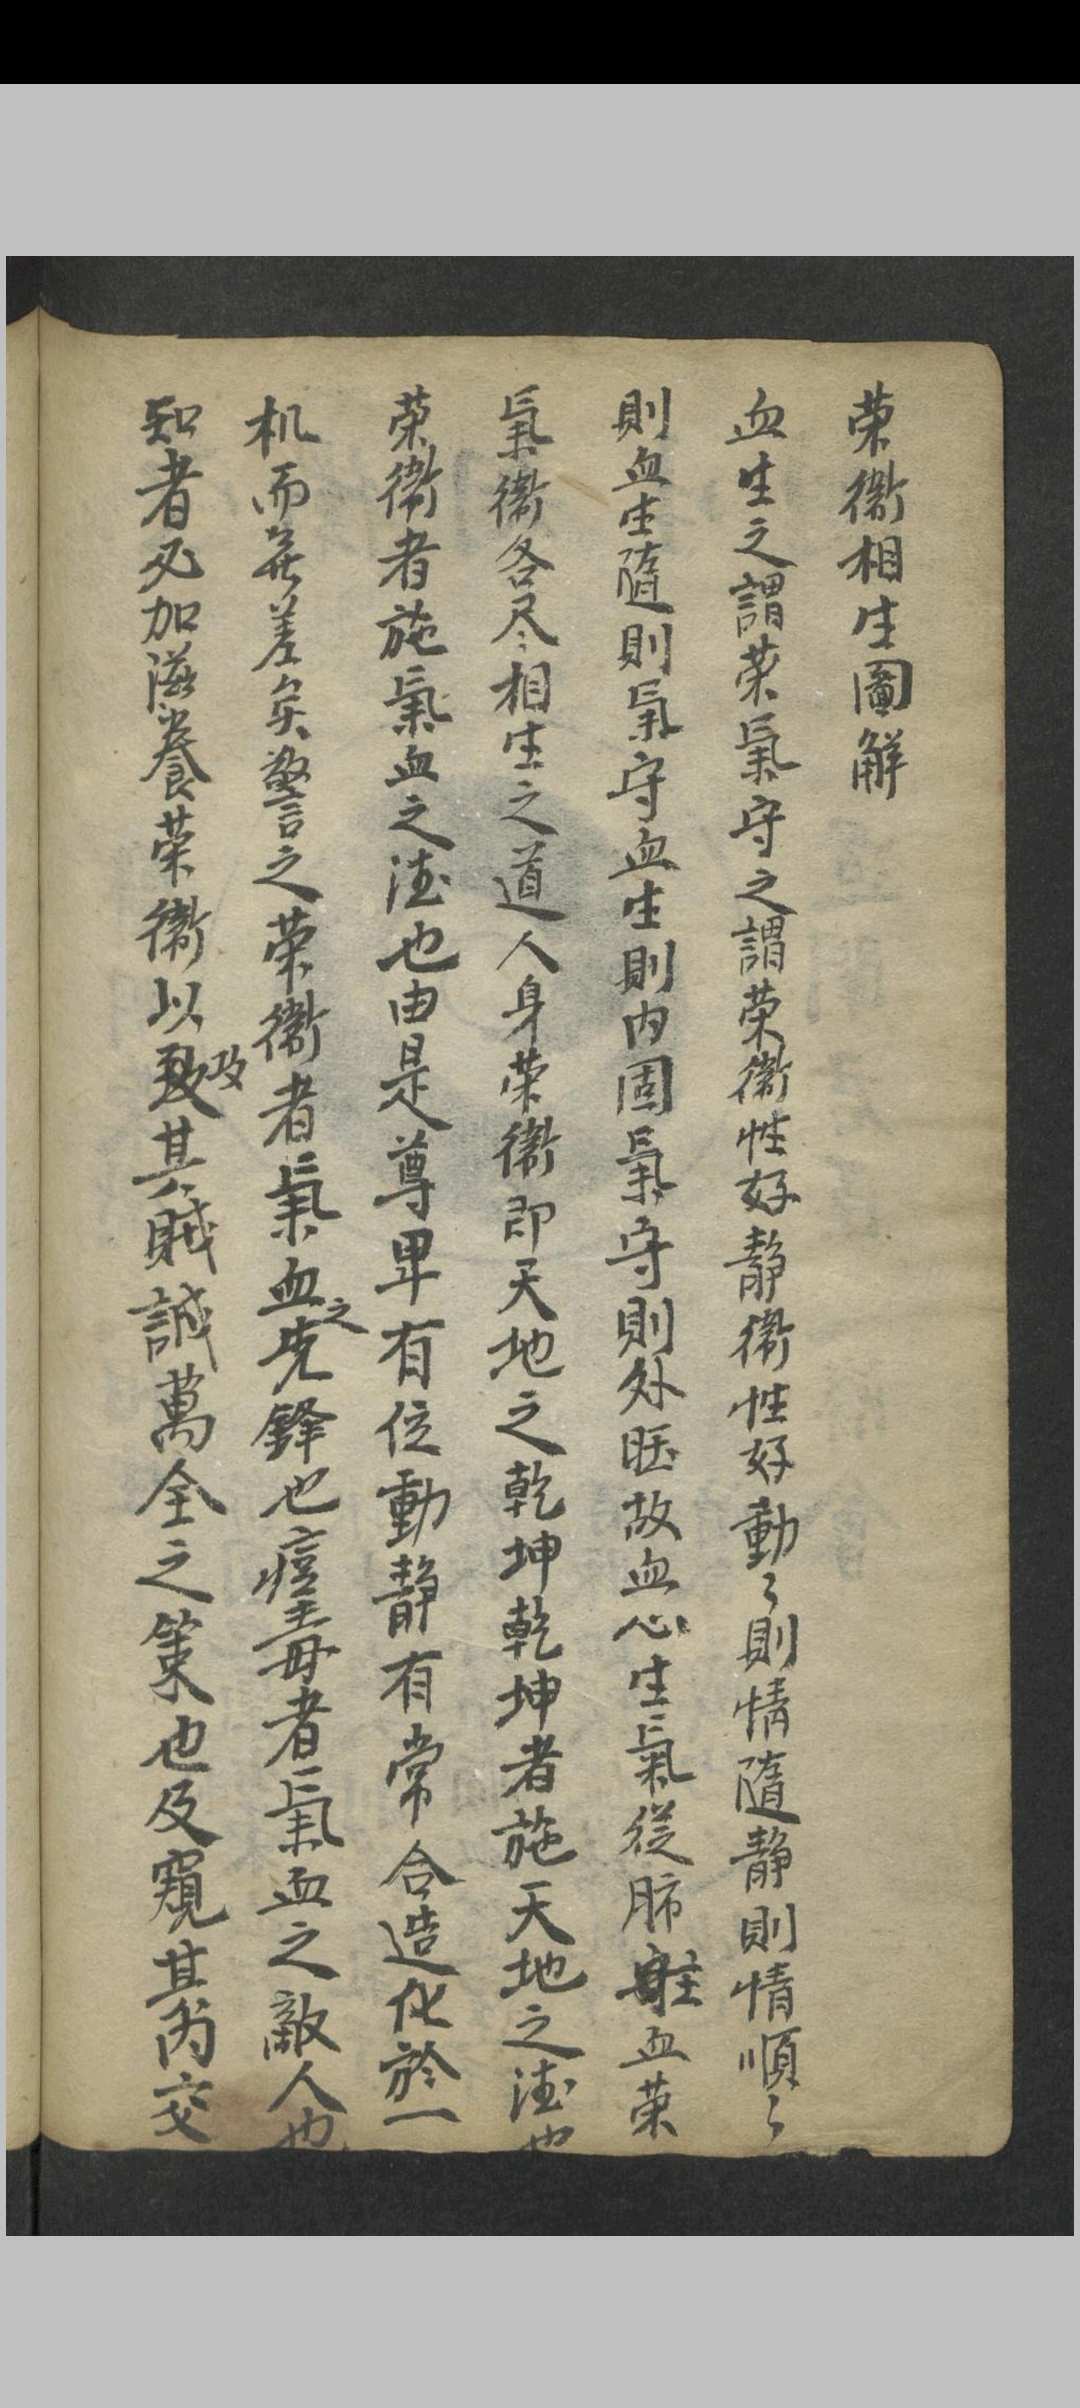 荣衞相生圖解
血生之謂荣氣守之謂荣衞性好静衞性好動〻則情隨静則情順〻
則血生隨則氣守血生則内固氣守則外旺故血心生氣從肺旺血荣
氣衞各尽相生之道人身荣衞即天地之乾坤乾坤者施天地之徳也
荣衞者施氣血之徳也由是尊卑有位動静有常合造化於一
机而無差矣警之荣衞者氣血之先鋒也痘毒者氣血之敵人也
知者必加滋養荣衞以攻其賊誠萬全之策也及窺其两交